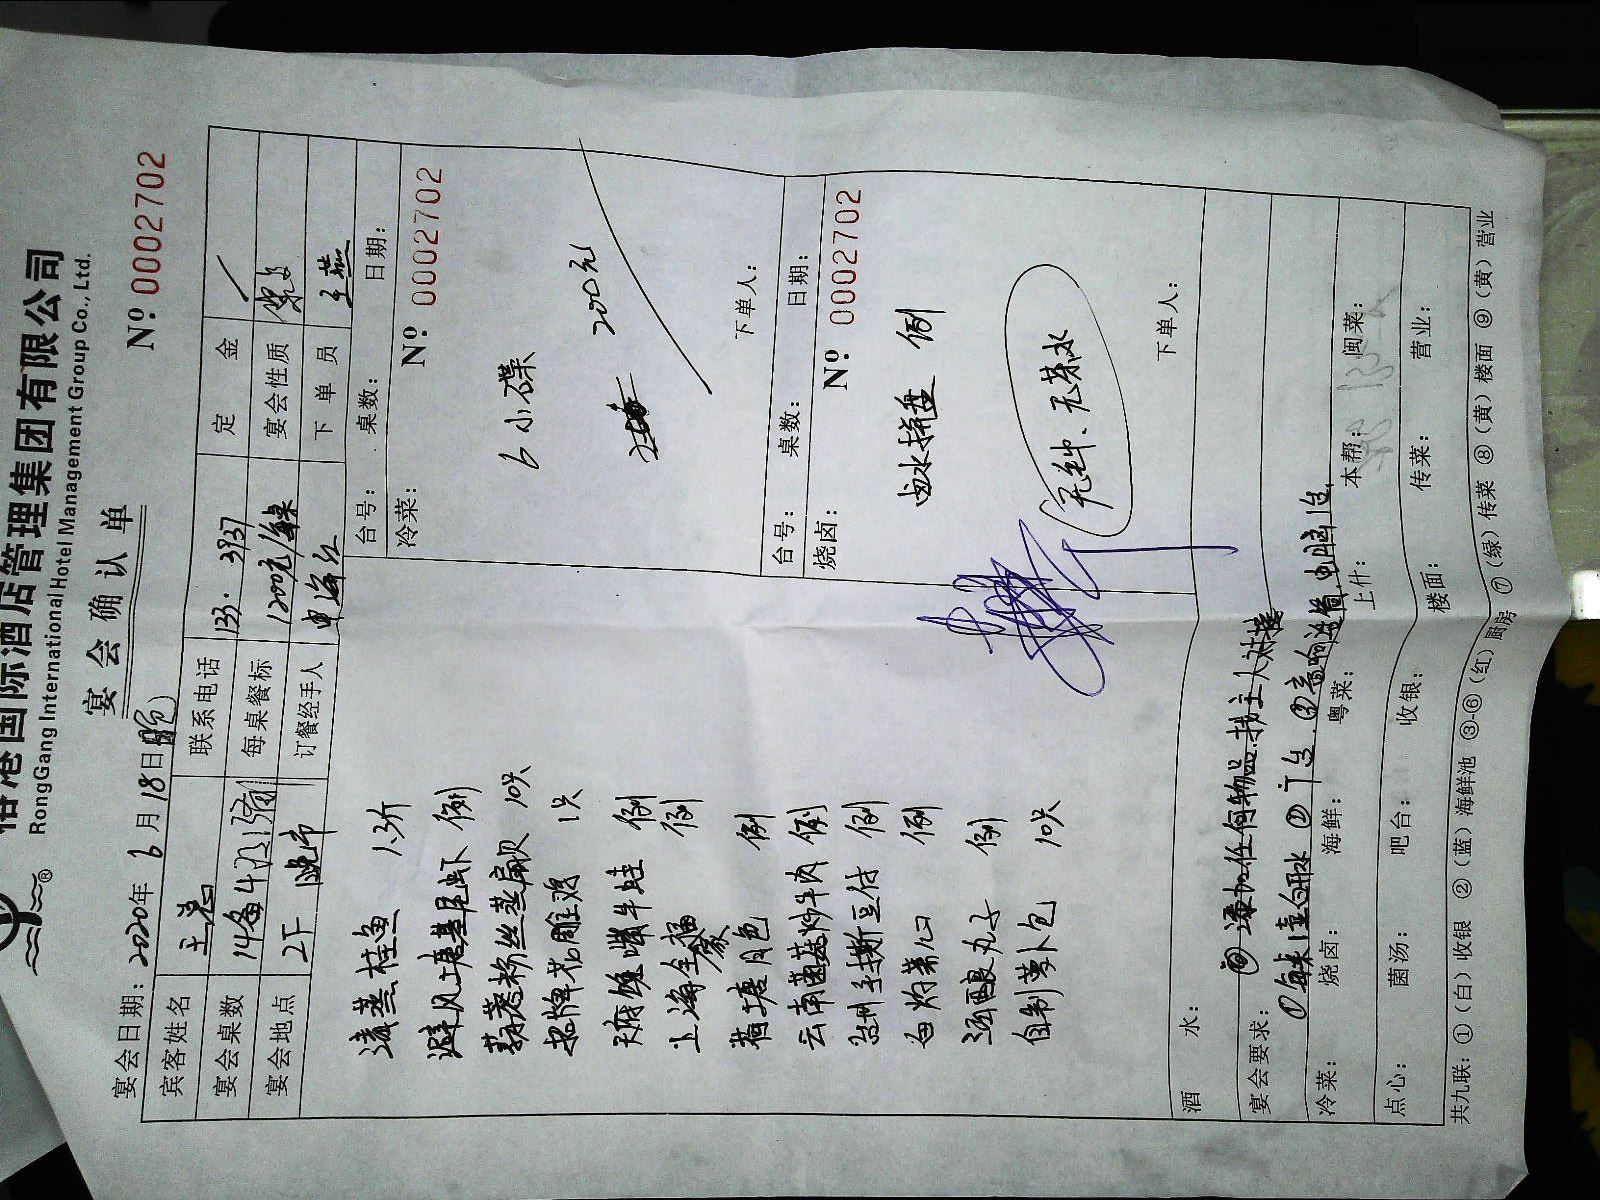 港国际酒店管理集团有限公司
RongGang International Hotel Management Group Co., Ltd.
宴会确认单
Nº 0002702
宴会日期：2020年6月18日(晚)
宾客姓名 联系电话 133. 3937 定金 ✓
宴会桌数 14备 每桌餐标 1200元/每桌 宴会性质
宴会地点 2F 晚市 订餐经手人 申海红 下单员 王燕
台号： 桌数： 日期：
冷菜： Nº 0002702
6小碟
200元
下单人：
台号： 桌数： 日期：
烧卤： Nº 0002702
卤水拼盘 例
下单人：
清蒸桂鱼 1.3斤
避风塘基尾虾 例
蒜茸粉丝蒸扇贝 10只
招牌花雕鸡 1只
天府馋嘴牛蛙 例
上海全家福 例
荷塘月色 例
云南菌菇炒牛肉 例
台州手撕豆付 例
白灼菜心 例
酒酿丸子 例
自制萝卜包 10只
酒水：
宴会要求： ④添加任何物品找主人对接
冷菜： 烧卤： 海鲜： 粤菜： 上什： 本帮： 闽菜：
点心： 菌汤： 吧台： 收银： 楼面： 传菜： 营业：
共九联：①（白）收银 ②（蓝）海鲜池 ③-⑥（红）厨房 ⑦（绿）传菜 ⑧（黄）楼面 ⑨（黄）营业